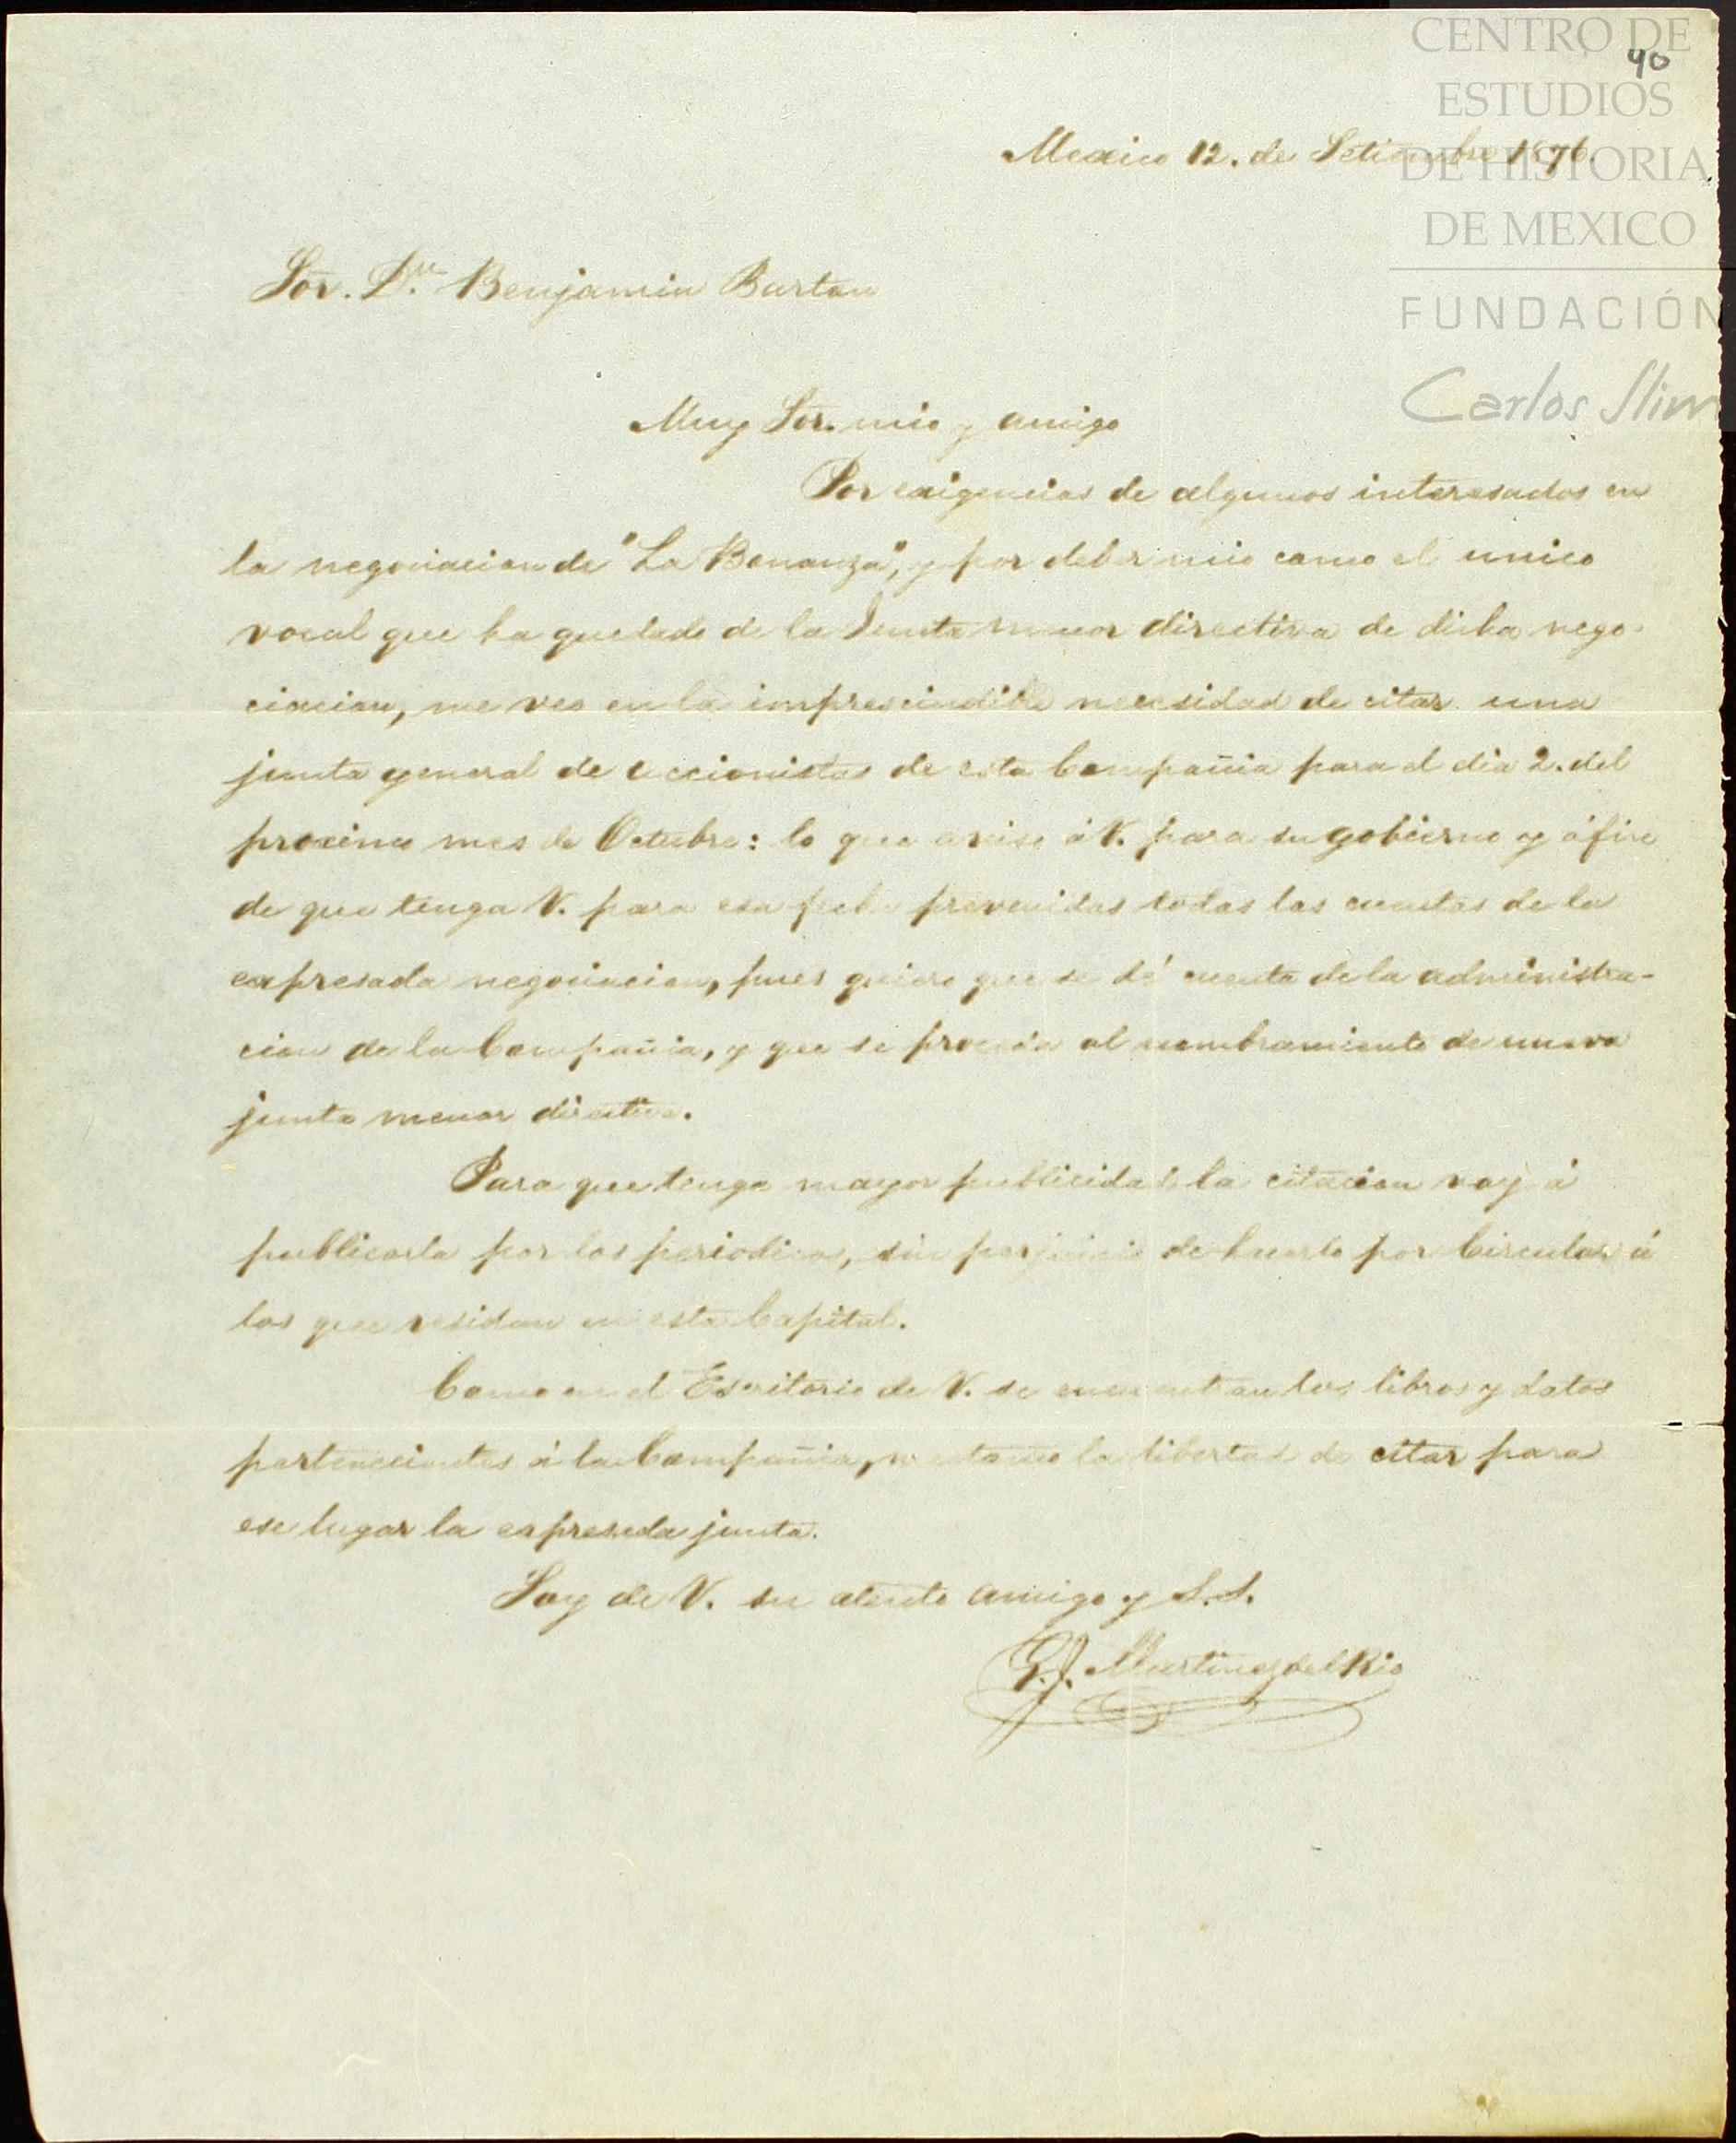 CENTRO DE
40
ESTUDIOS
DE HISTORIA
DE MEXICO
FUNDACIÓN
Carlos Slim
Mexico 12. de Setiembre 1876.
Sor. Dn. Benjamin Barton
Muy Sor. mio y amigo
Por exigencias de algunos interesados en
la negociacion de "La Bonanza", y por deber mio como el unico
vocal que ha quedado de la Junta menor directiva de dicha nego-
ciacion, me veo en la imprescindible necesidad de citar una
junta general de accionistas de esta Compañia para el dia 2. del
proximo mes de Octubre: lo que aviso á V. para su gobierno y á fin
de que tenga V. para esa fecha prevenidas todas las cuentas de la
expresada negociacion, pues quiero que se dé cuenta de la administra-
cion de la Compañia, y que se proceda al nombramiento de nueva
junta menor directiva.
Para que tenga mayor publicidad la citacion voy á
publicarla por los periodicos, sin perjuicio de hacerlo por Circular á
los que residan en esta Capital.
Como en el Escritorio de V. se encuentran los libros y datos
pertenecientes á la Compañia, me tomo la libertad de citar para
ese lugar la expresada junta.
Soy de V. su atento amigo y S.S.
G.J. Martinez del Rio